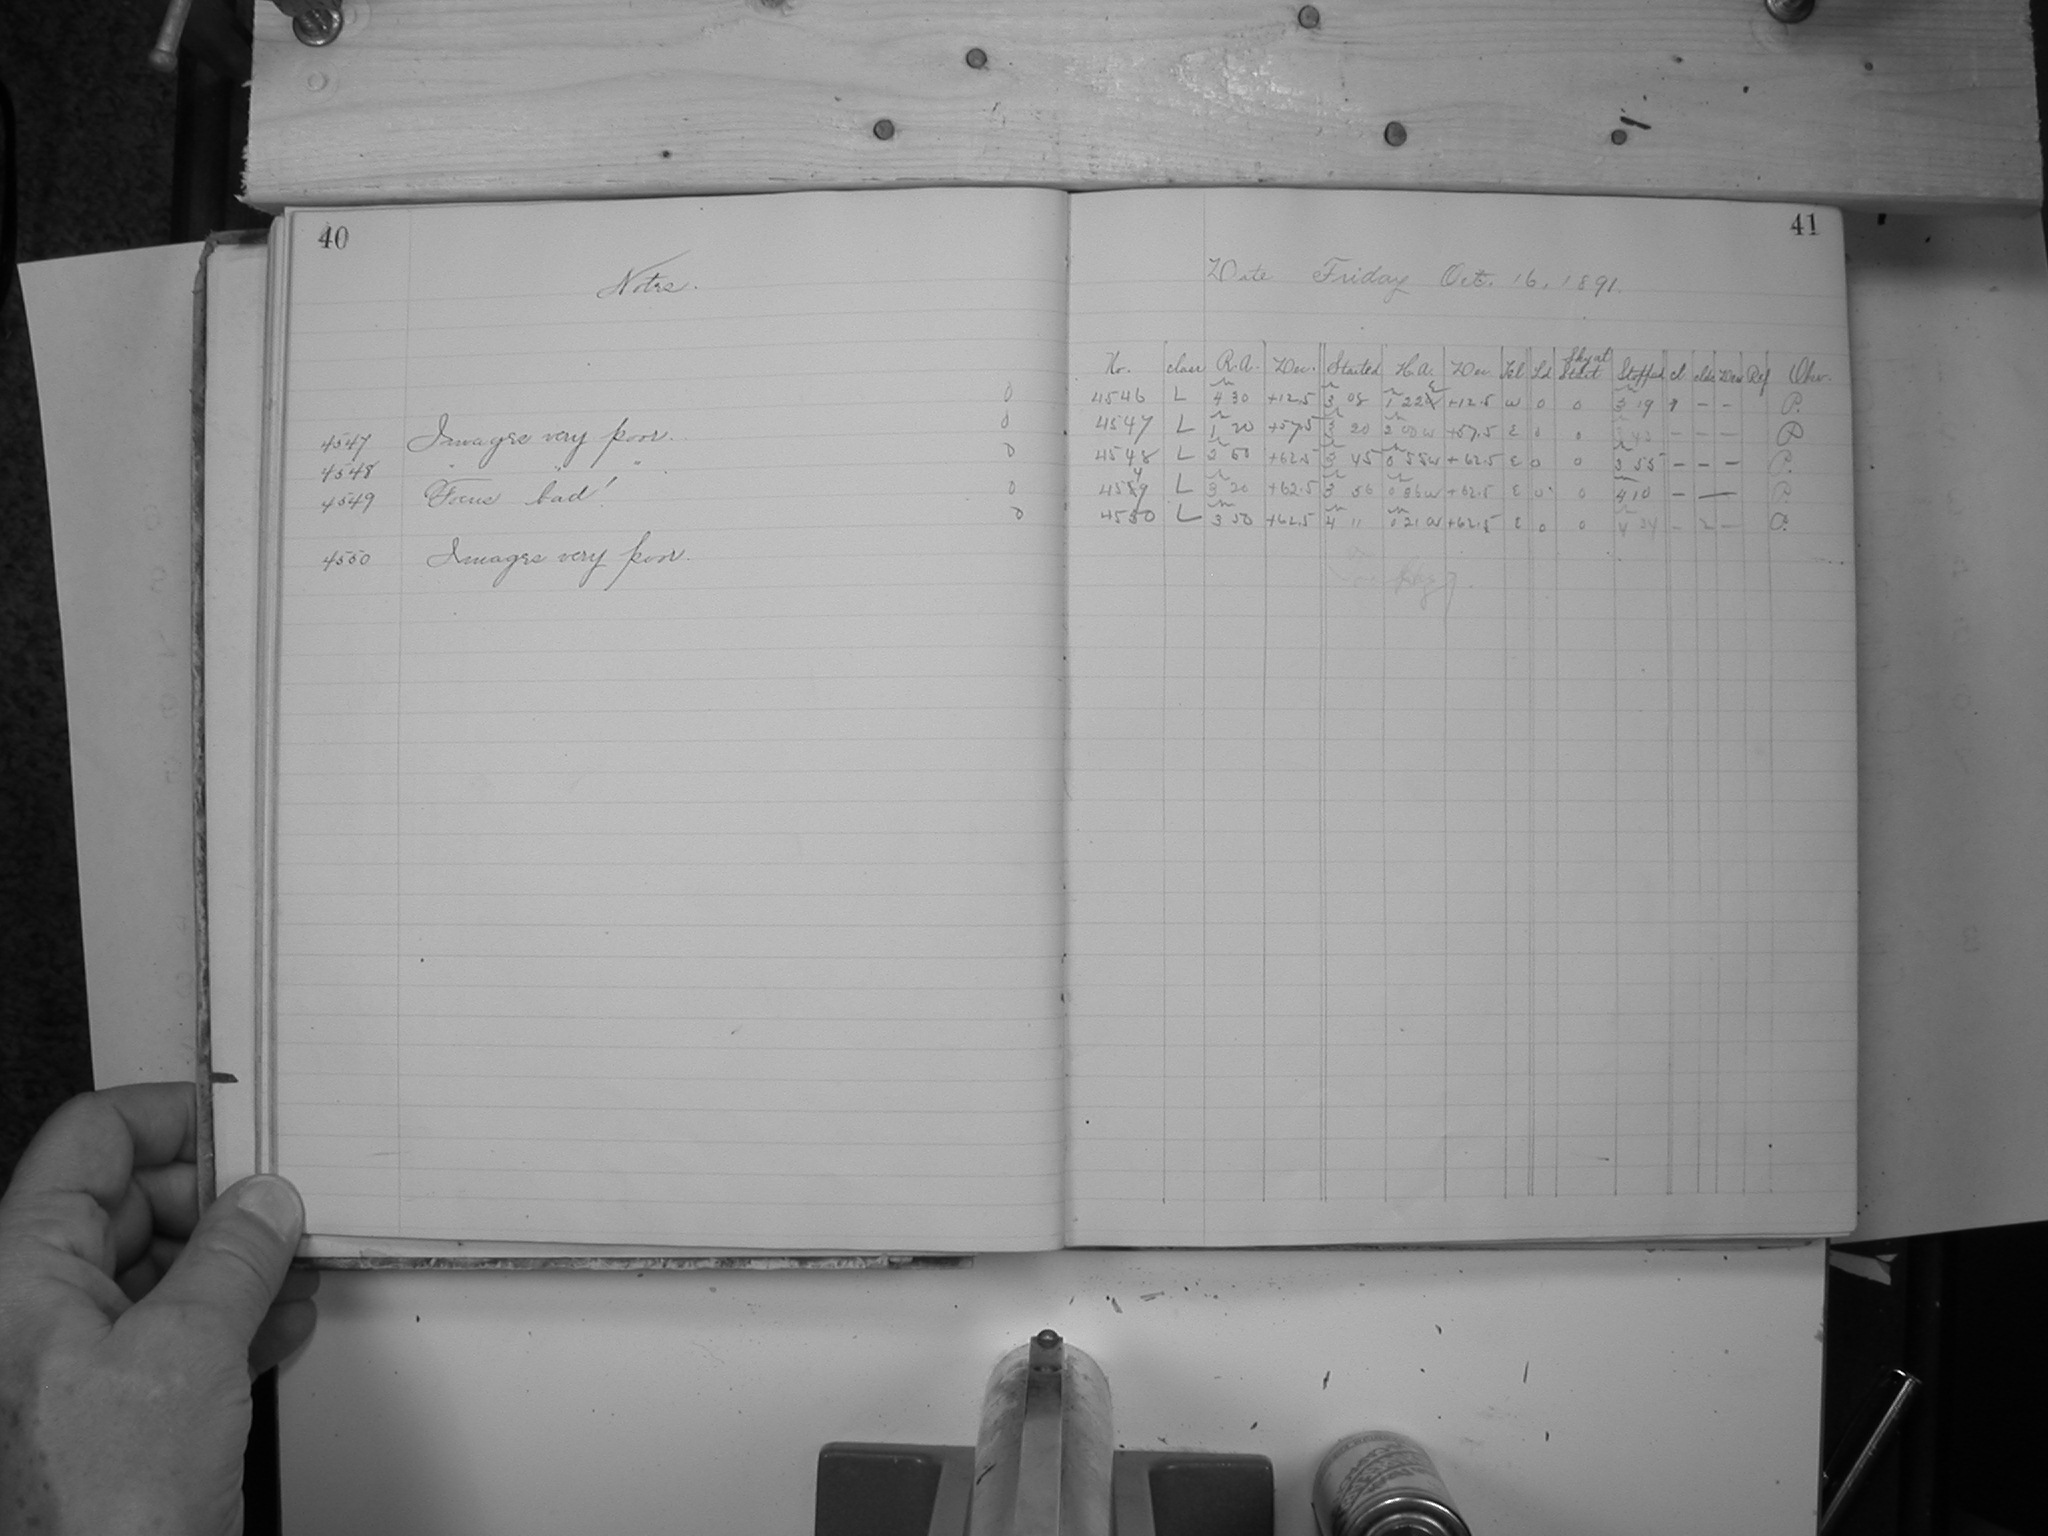 40
Notes.
0
0
4547 Images very poor.
4548 " " " .
0
4549 Focus bad!
0
0
4550 Images very poor.
41
Date Friday Oct. 16, 1891.
No. class R.A. Dec. Started H.A. Dec. Tel Ld Sky at Start Stopped cl. clds Dew Ref Obsr.
4546 L 4 30 +12.5 3 08 1 22 E +12.5 W 0 0 3 19 1 - - P.
4547 L 1 20 +57.5 3 20 2 00 W +57.5 E 0 0 3 - - - P
4548 L 2 50 +62.5 3 45 0 55 W +62.5 E 0 0 3 55 - - - P.
4549 L 3 20 +62.5 3 56 0 36 W +62.5 E 0 0 4 10 - — P.
4550 L 3 50 +62.5 4 11 0 21 W +62.5 E 0 0 4 - 2 - P.